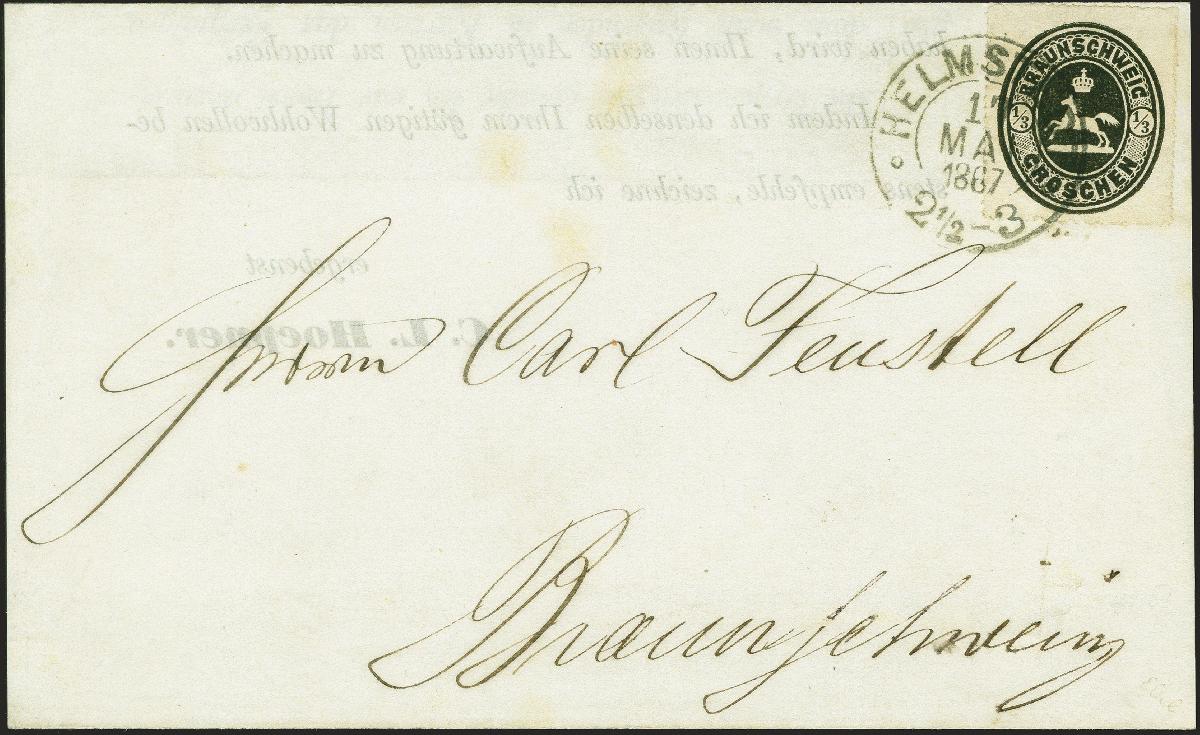 haben wird, Ihnen seine seinen Aufwartung zu machen.
Indem ich denselben Ihrem gütigen Wohlwollen be-
stens empfehle, zeichne ich
ergebenst
C. L. Hoepner.
HELMS
1
MA
1867
2½-3
BRAUNSCHWEIG
1/3 1/3
GROSCHEN
Herrn Carl Feustell
Braunschweig